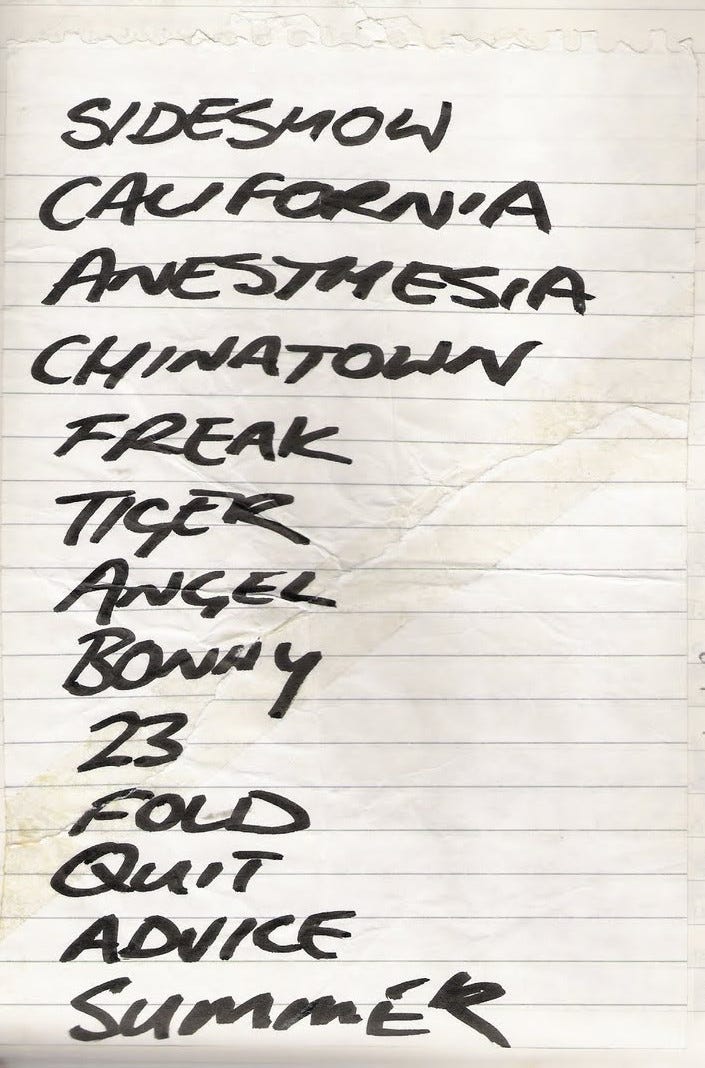 SIDESHOW
CALIFORNIA
ANESTHESIA
CHINATOWN
FREAK
TIGER
ANGEL
BONNY
23
FOLD
QUIT
ADVICE
SUMMER